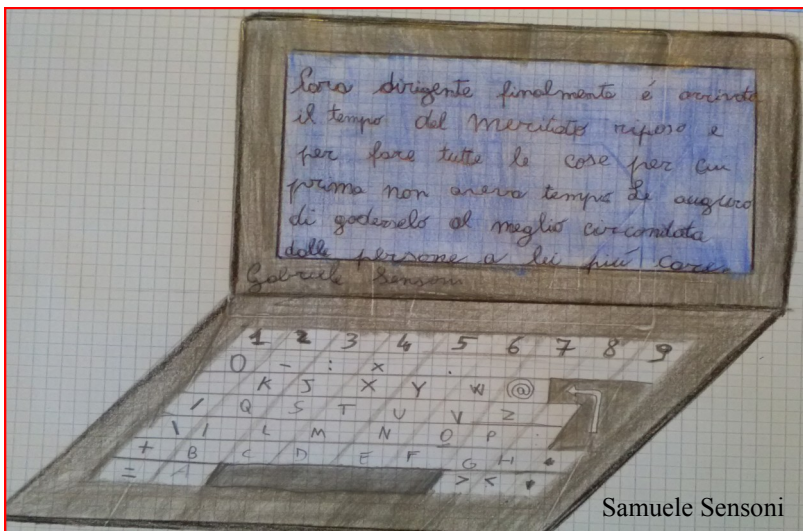 Cara dirigente finalmente é arrivato
il tempo del meritato riposo e
per fare tutte le cose per cui
prima non aveva tempo Le auguro
di goderselo al meglio circondata
dalle persone a lei più care
Gabriele Sensoni
1 2 3 4 5 6 7 8 9
0 - : x .
K J X Y W @
/ Q S T U V Z
\ I L M N O P .
+ B C D E F G H
= A > <
Samuele Sensoni